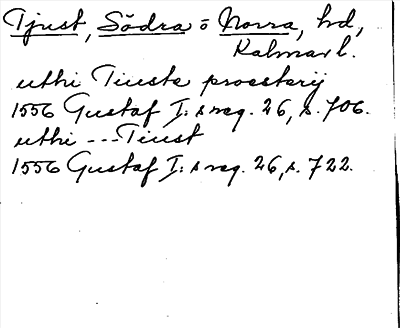 Tjust, Södra o Norra, hd,
Kalmar l.
uthi Tiusts proesterij
1556 Gustaf I:s reg. 26, s. 706.
uthi --- Tiust
1556 Gustaf I:s reg. 26, s. 722.